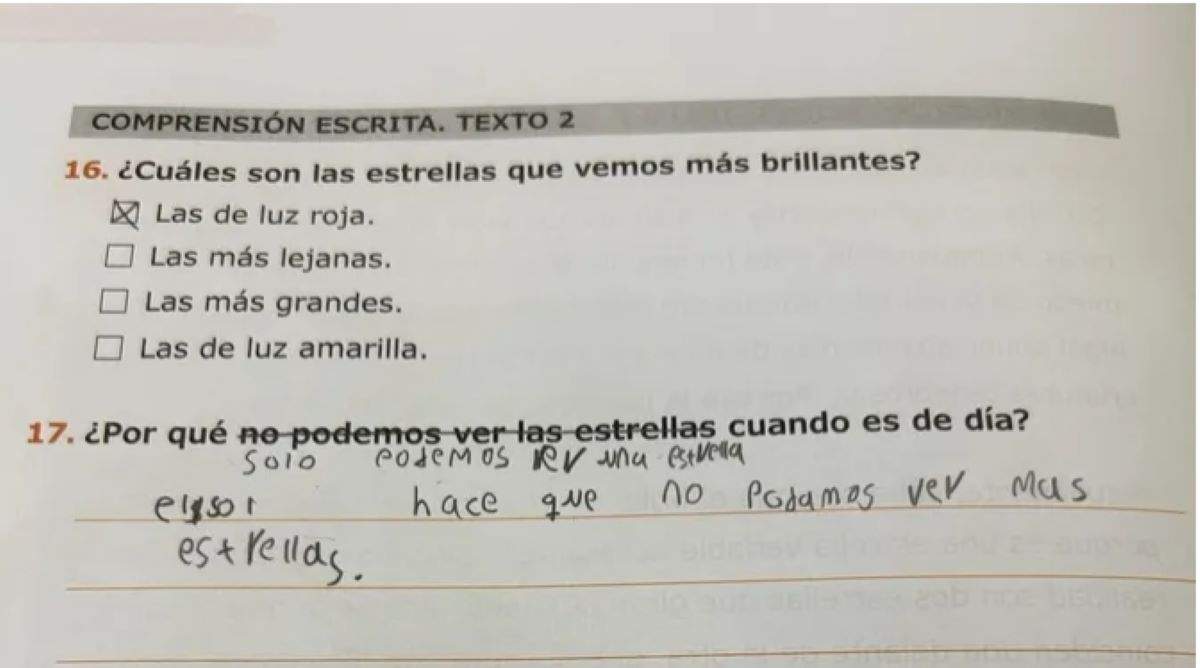 COMPRENSIÓN ESCRITA. TEXTO 2
16. ¿Cuáles son las estrellas que vemos más brillantes?
☒ Las de luz roja.
☐ Las más lejanas.
☐ Las más grandes.
☐ Las de luz amarilla.
17. ¿Por qué no podemos ver las estrellas cuando es de día?
solo podemos ver una estrella
el sol hace que no podamos ver mas
estrellas.